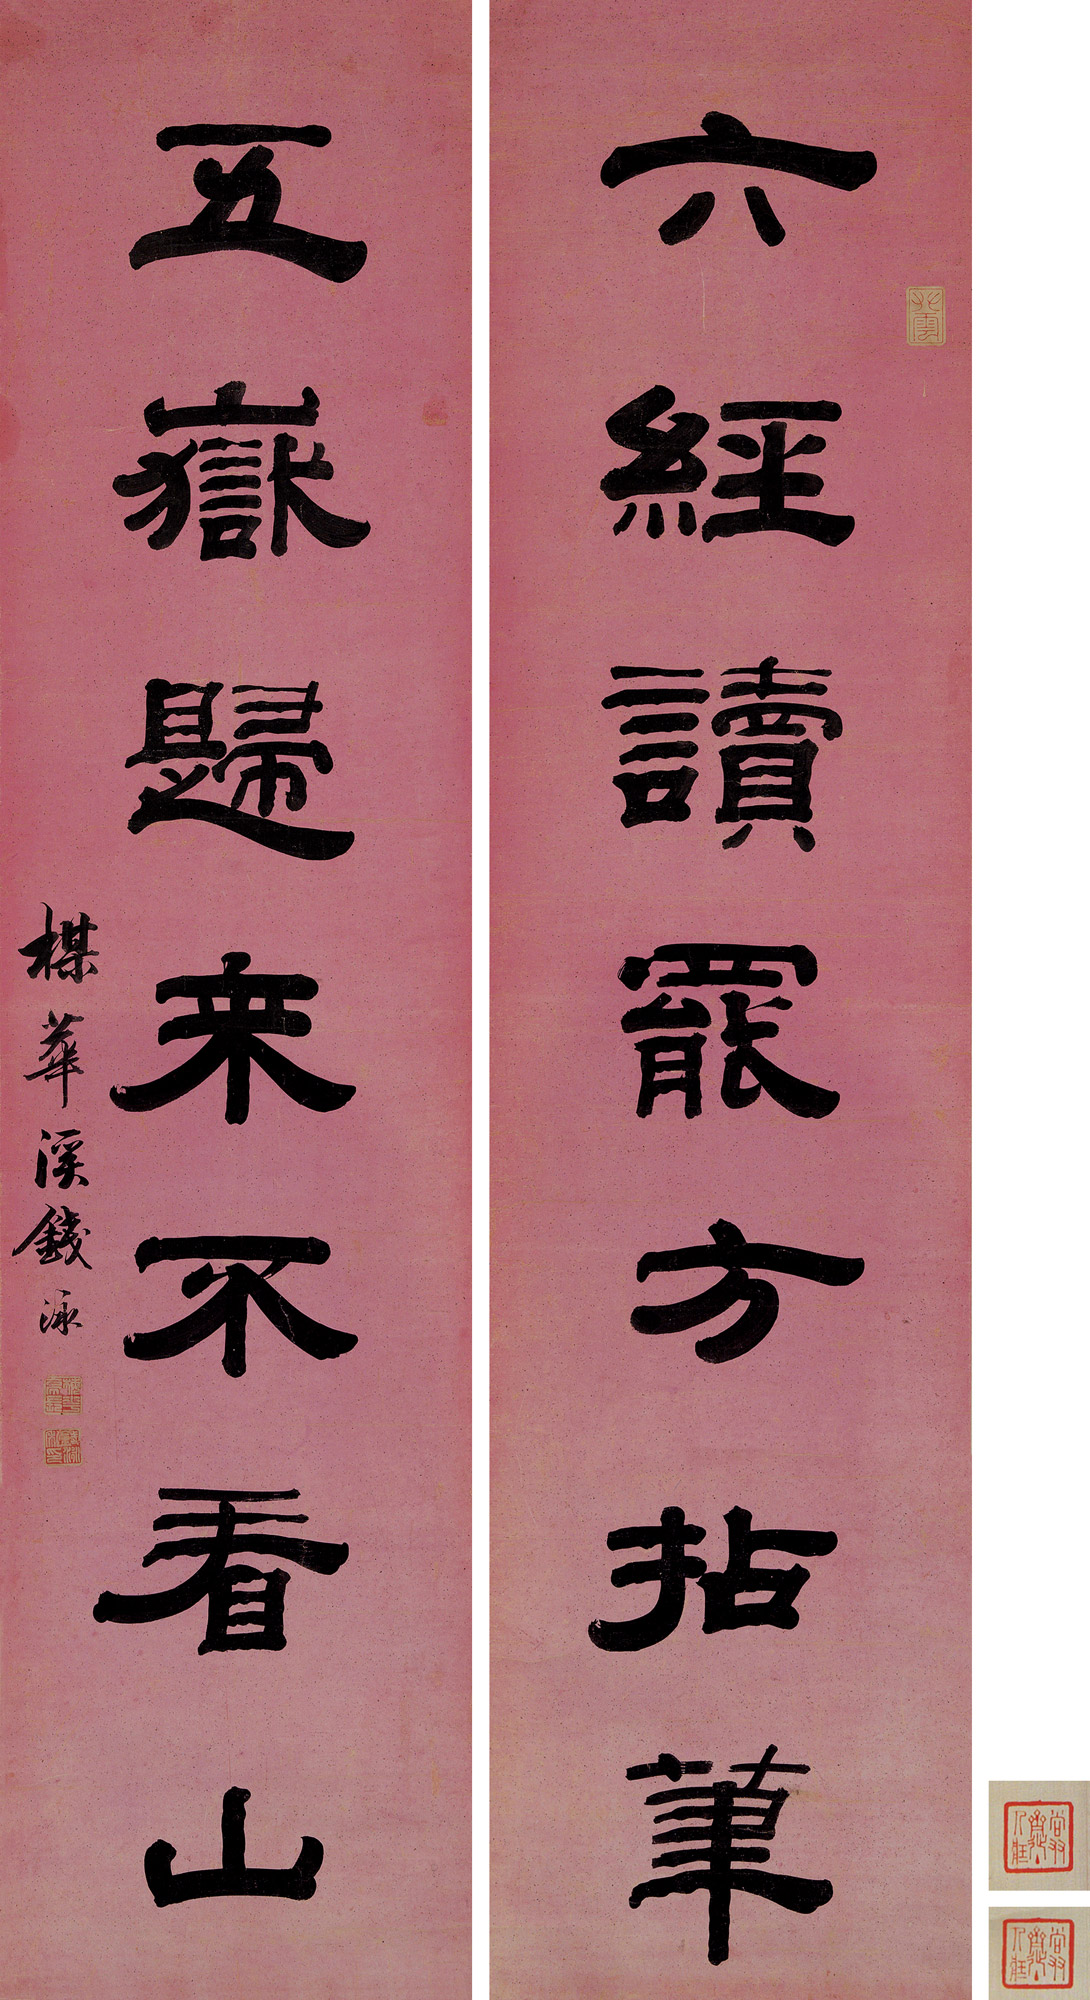 六經讀罷方拈筆
五嶽歸来不看山
楳華溪錢泳